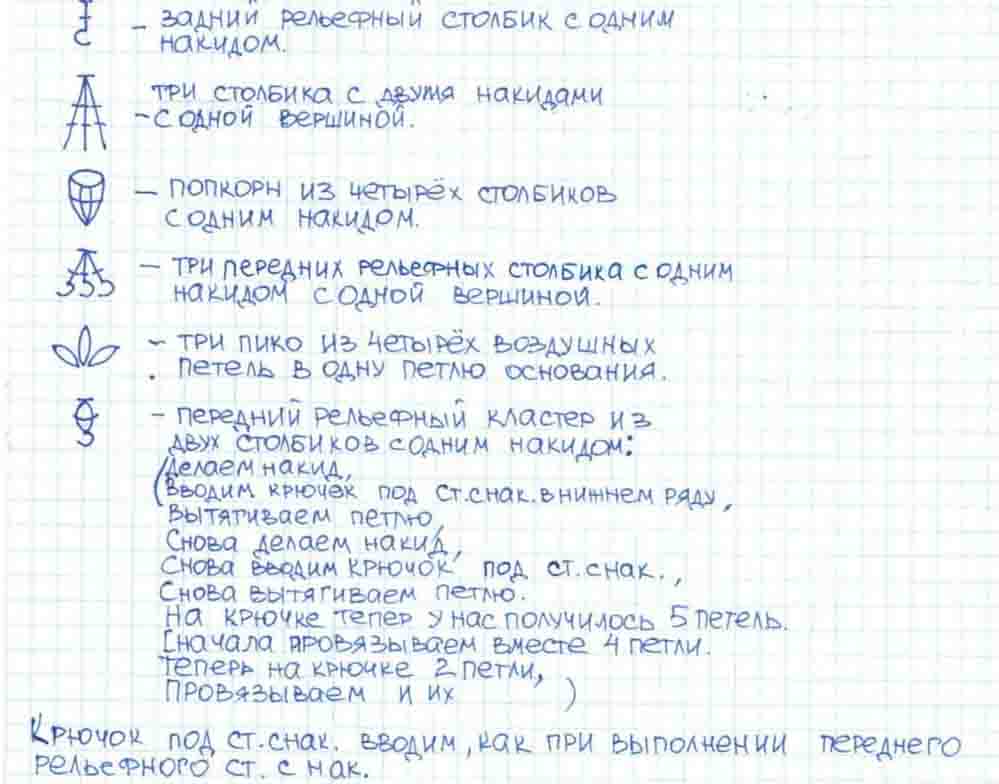 – задний рельефный столбик с одним
накидом.
три столбика с двумя накидами
– с одной вершиной.
– попкорн из четырёх столбиков
с одним накидом.
– три передних рельефных столбика с одним
накидом с одной вершиной.
– три пико из четырёх воздушных
петель в одну петлю основания.
– передний рельефный кластер из
двух столбиков с одним накидом:
(Делаем накид,
Вводим крючок под ст.снак. в нижнем ряду,
Вытягиваем петлю,
Снова делаем накид,
Снова вводим крючок под ст.снак.,
Снова вытягиваем петлю.
На крючке тепер у нас получилось 5 петель.
Сначала провязываем вместе 4 петли.
Теперь на крючке 2 петли,
Провязываем и их )
Крючок под ст.снак. вводим, как при выполнении переднего
рельефного ст. с нак.